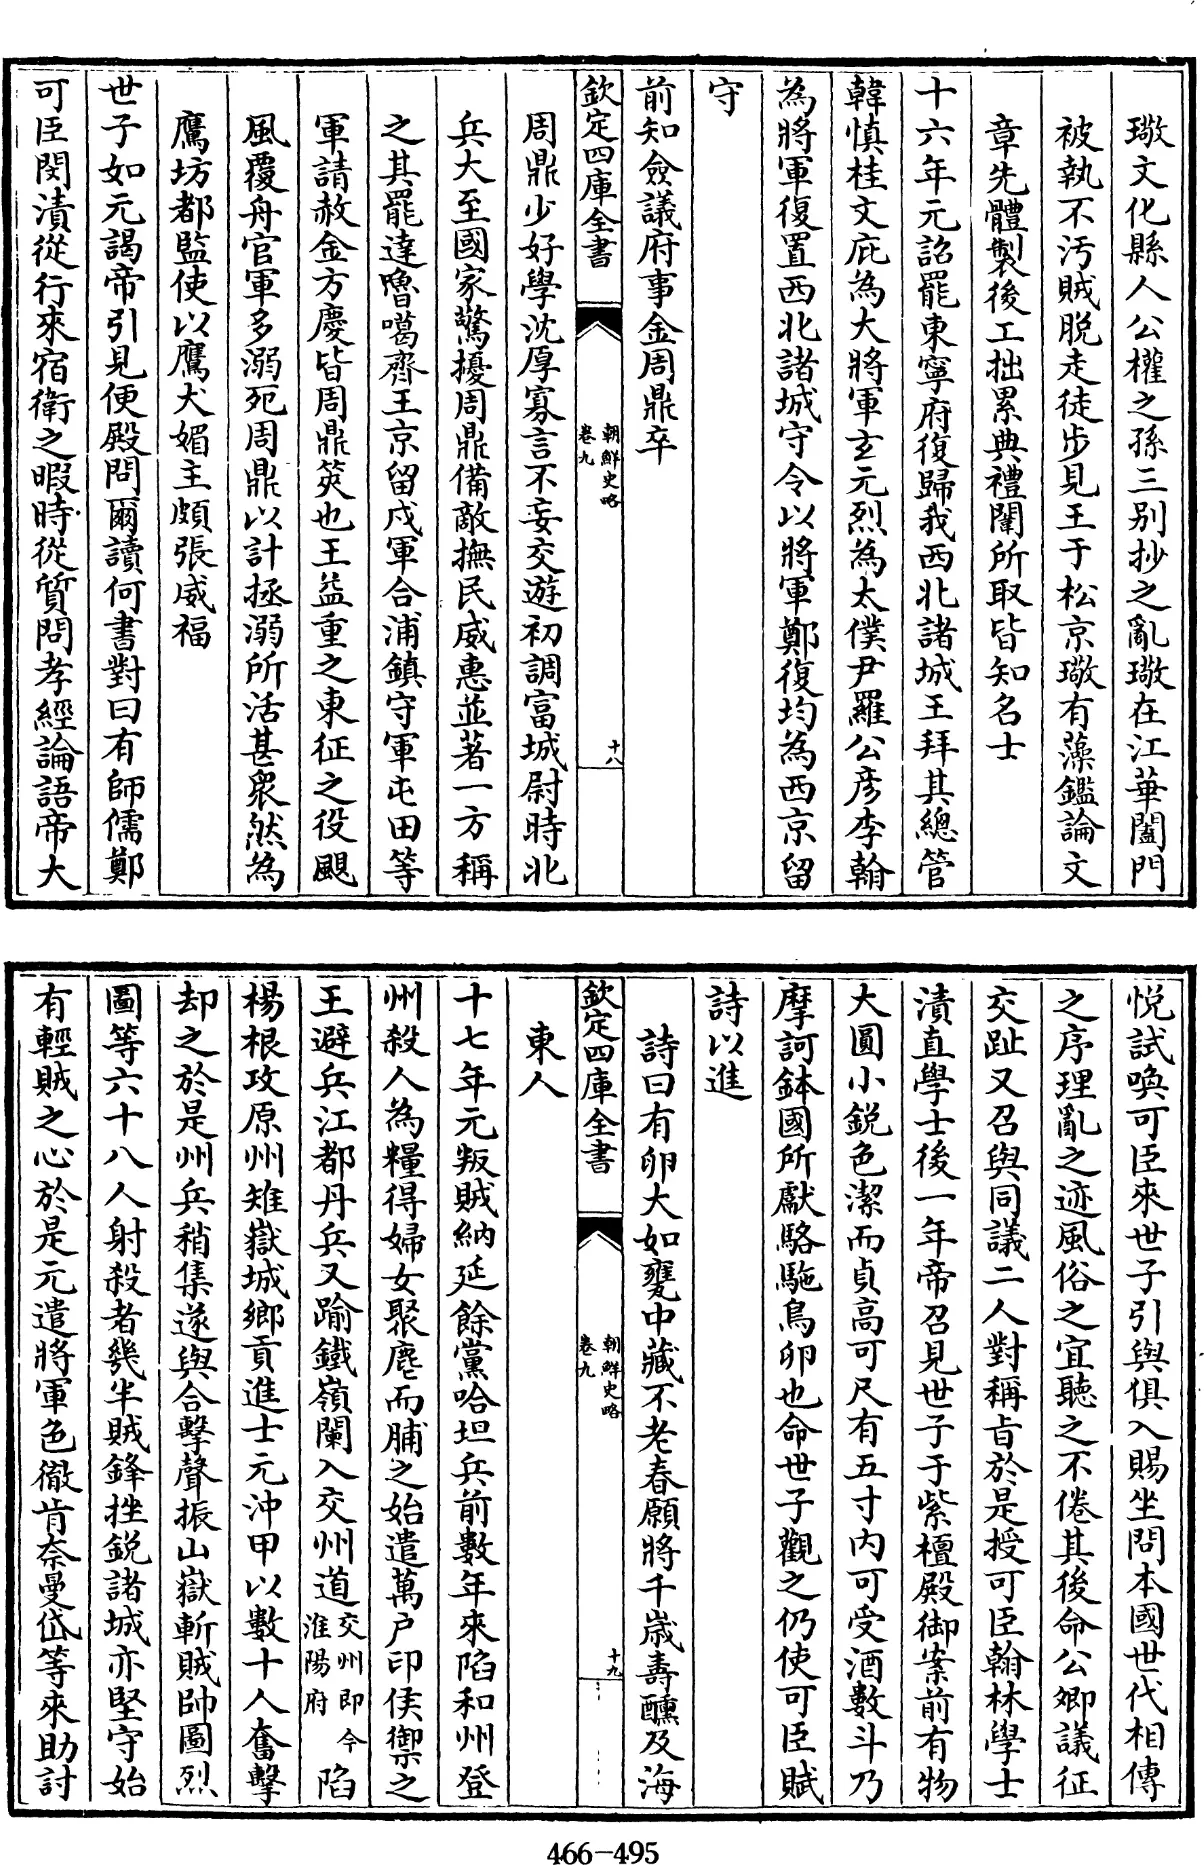 璥文化縣人公權之孫三别抄之亂璥在江華闔門
被執不汚賊脱走徒步見王于松京璥有藻鑑論文
章先體製後工拙累典禮闈所取皆知名士
十六年元詔罷東寧府復歸我西北諸城王拜其總管
韓慎桂文庇為大將軍玄元烈為太僕尹羅公彦李翰
為將軍復置西北諸城守令以將軍鄭復均為西京留
守
前知僉議府事金周鼎卒
欽定四庫全書
朝鮮史略
卷九
十八
周鼎少好學沈厚寡言不妄交遊初調富城尉時北
兵大至國家驚擾周鼎備敵撫民威惠並著一方稱
之其罷達嚕噶齊王京留戍軍合浦鎮守軍屯田等
軍請赦金方慶皆周鼎筴也王益重之東征之役颶
風覆舟官軍多溺死周鼎以計拯溺所活甚衆然為
鷹坊都監使以鷹犬媚主頗張威福
世子如元謁帝引見便殿問爾讀何書對曰有師儒鄭
可臣閔漬從行來宿衛之暇時從質問孝經論語帝大
悦試喚可臣來世子引與俱入賜坐問本國世代相傳
之序理亂之迹風俗之宜聽之不倦其後命公卿議征
交趾又召與同議二人對稱旨於是授可臣翰林學士
漬直學士後一年帝召見世子于紫檀殿御案前有物
大圓小鋭色潔而貞高可尺有五寸内可受酒數斗乃
摩訶鉢國所獻駱駞鳥卵也命世子觀之仍使可臣賦
詩以進
詩曰有卵大如甕中藏不老春願將千歳壽醺及海
欽定四庫全書
朝鮮史略
卷九
十九
東人
十七年元叛賊納延餘黨哈坦兵前數年來陷和州登
州殺人為糧得婦女聚麀而脯之始遣萬户印侯禦之
王避兵江都丹兵又踰鐵嶺闌入交州道交州即今淮陽府陷
楊根攻原州雉嶽城鄉貢進士元沖甲以數十人奮擊
却之於是州兵稍集遂與合擊聲振山嶽斬賊帥圖烈
圖等六十八人射殺者幾半賊鋒挫鋭諸城亦堅守始
有輕賊之心於是元遣將軍色徹肯奈曼岱等來助討
466-495